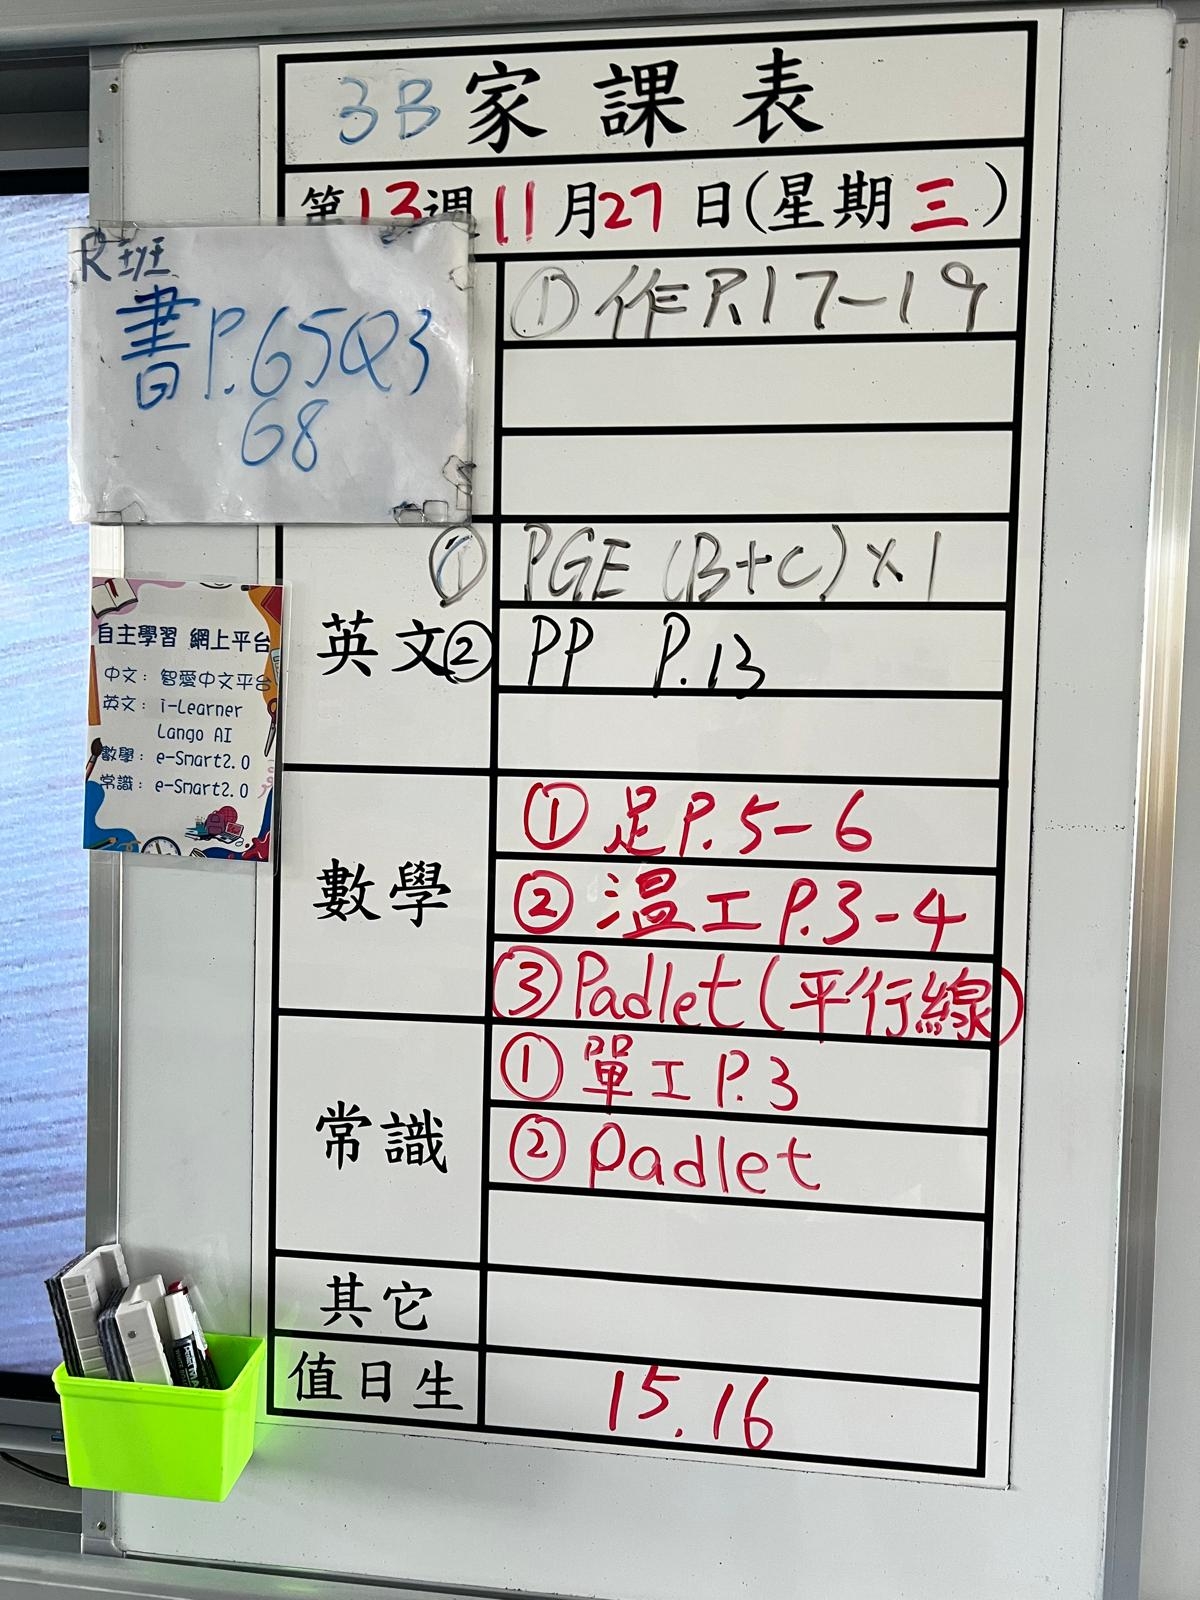 3B家課表
第13週11月27日(星期三)
R班
書P.65Q3
68
① 作P.17-19
英文
① PGE (B+C)×1
② PP P.13
數學
① 足P.5-6
② 溫工P.3-4
③ Padlet(平行線)
常識
① 單工P.3
② Padlet
其它
值日生
15.16
自主學習 網上平台
中文: 智愛中文平台
英文: i-Learner
Lango AI
數學: e-Smart2.0
常識: e-Smart2.0